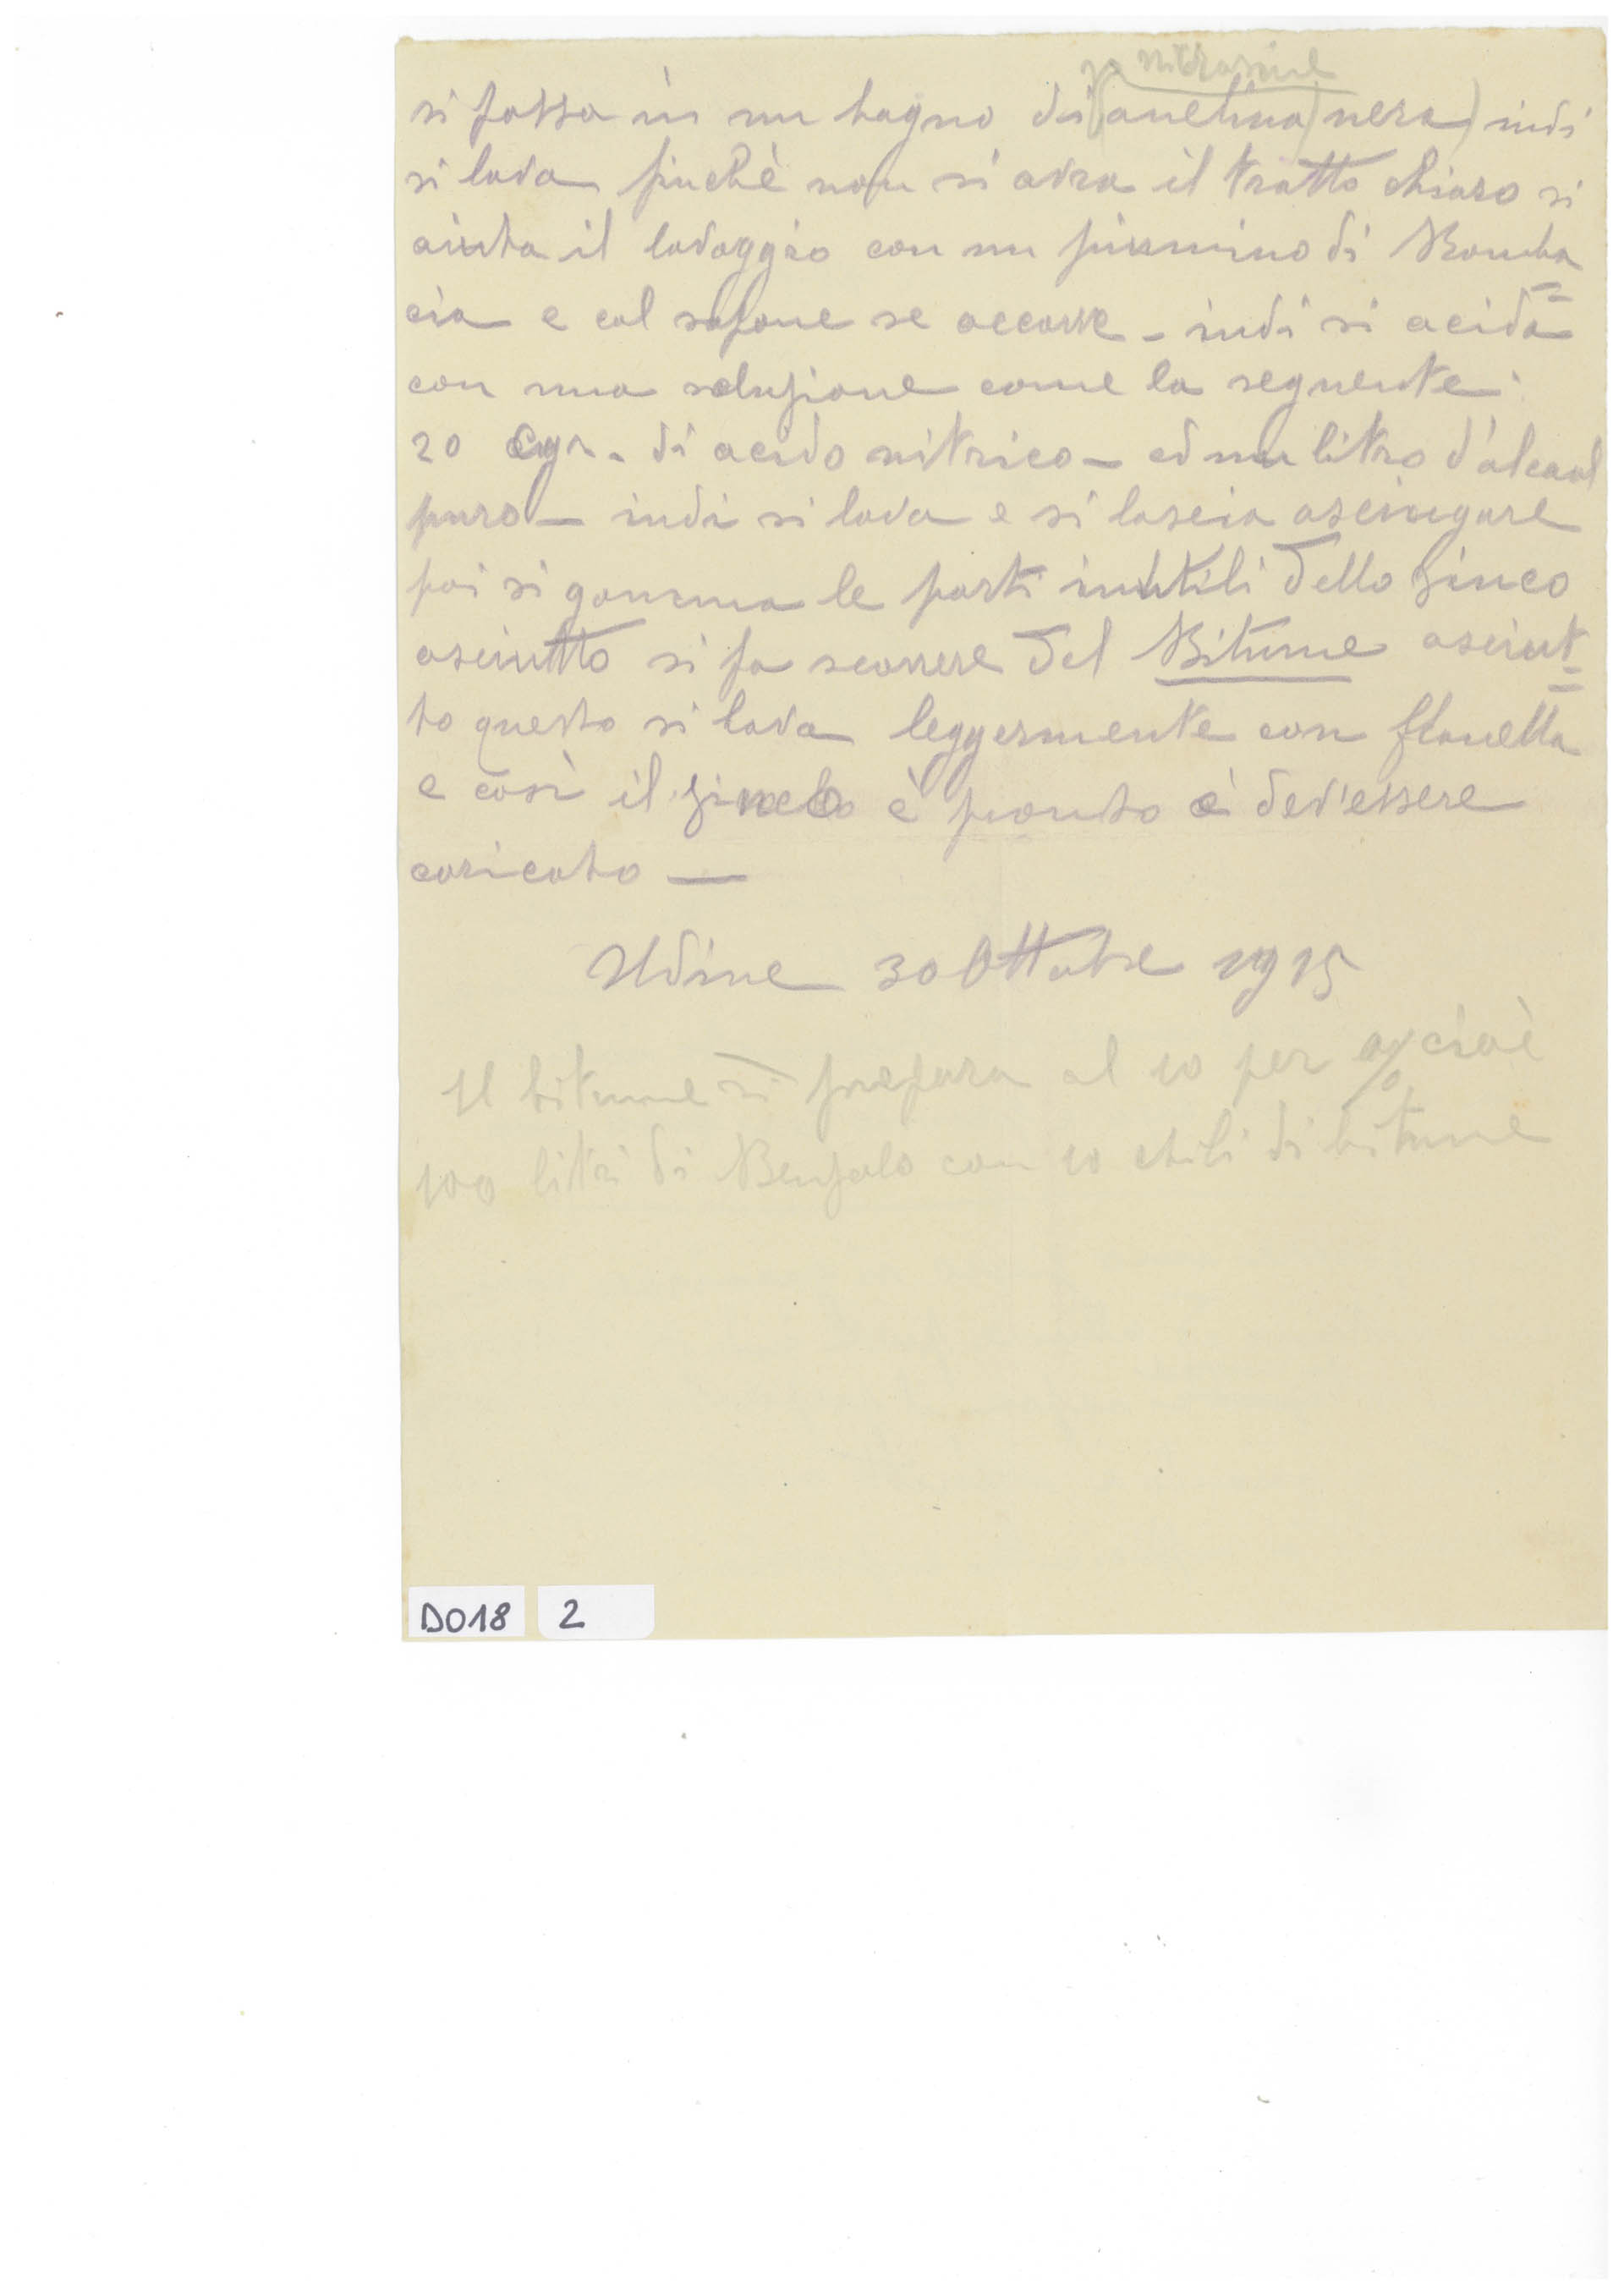 o nitrosine
si passa in un bagno di (anelina) nera) indi
si lava finchè non si avra il tratto chiaro si
aiuta il lavaggio con un piumino di Bomba=
cia e col sapone se occorre – indi si acida
con una soluzione come la seguente:
20 Cgr. di acido nitrico – ed un litro d'alcool
puro – indi si lava e si lascia asciugare
poi si gomma le parti inutili dello zinco
asciutto si fa scorrere del Bitume asciut=
to questo si lava leggermente con flanella
e così il zinco è pronto e dev'essere
caricato —
Udine 30 Ottobre 1915
Il bitume si prepara al 10 per % cioè
100 litri di Benzolo con 10 chili di bitume
D018 2